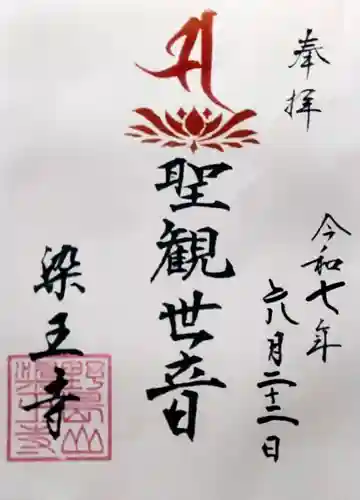 奉拝
令和七年
八月二十二日
聖観世音
染王寺